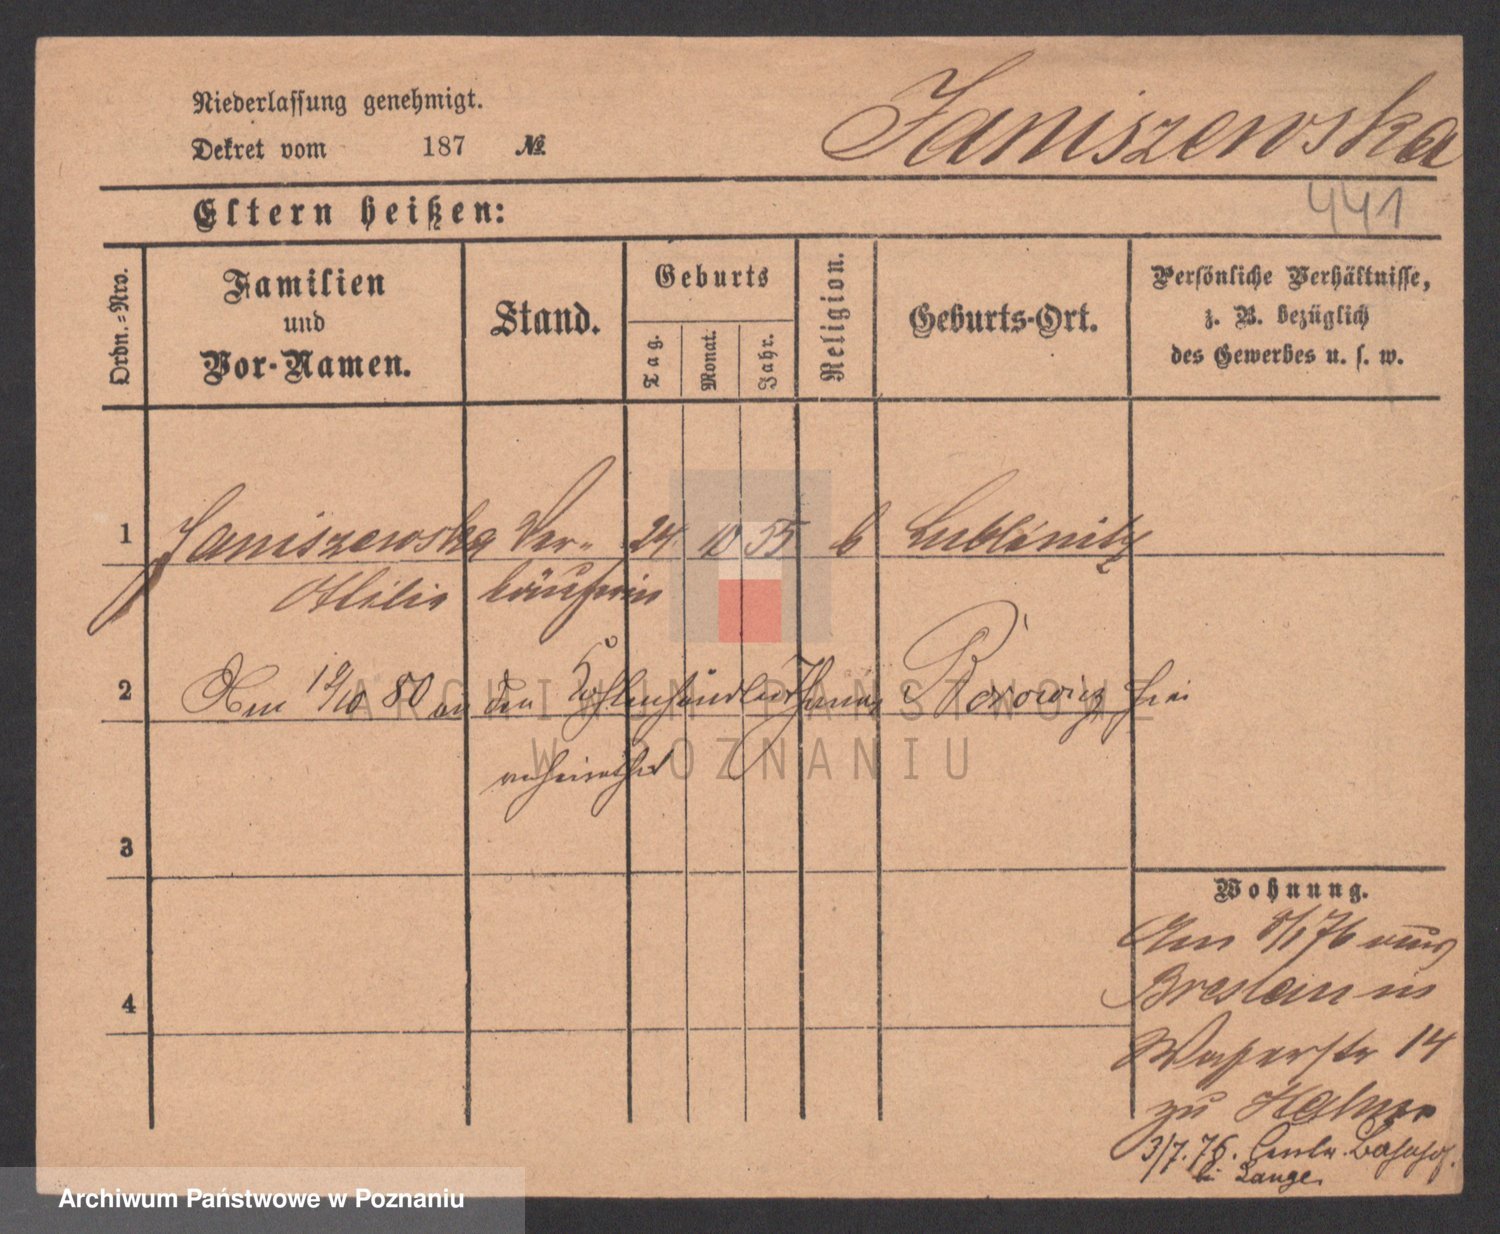 Niederlassung genehmigt.
Dekret vom 187 №
Janiszewska
441
Eltern heißen:
Ordn.-Nro.
Familien
und
Vor-Namen.
Stand.
Geburts
Tag.
Monat.
Jahr.
Religion.
Geburts-Ort.
Persönliche Verhältnisse,
z. B. bezüglich
des Gewerbes u. s. w.
1 Janiszewska Ver- 24 10 55 Lublinitz
käuferin
2 Am 80 an den Kohlenhändler Borowicz hier
verheirathet
3
4
Wohnung.
Am 8/1 76 aus
Breslau in
Wasserstr 14
zu
3/7. 76. Centr. Bahnhof.
bei Lange.
ARCHIWUM PAŃSTWOWE
W POZNANIU
Archiwum Państwowe w Poznaniu